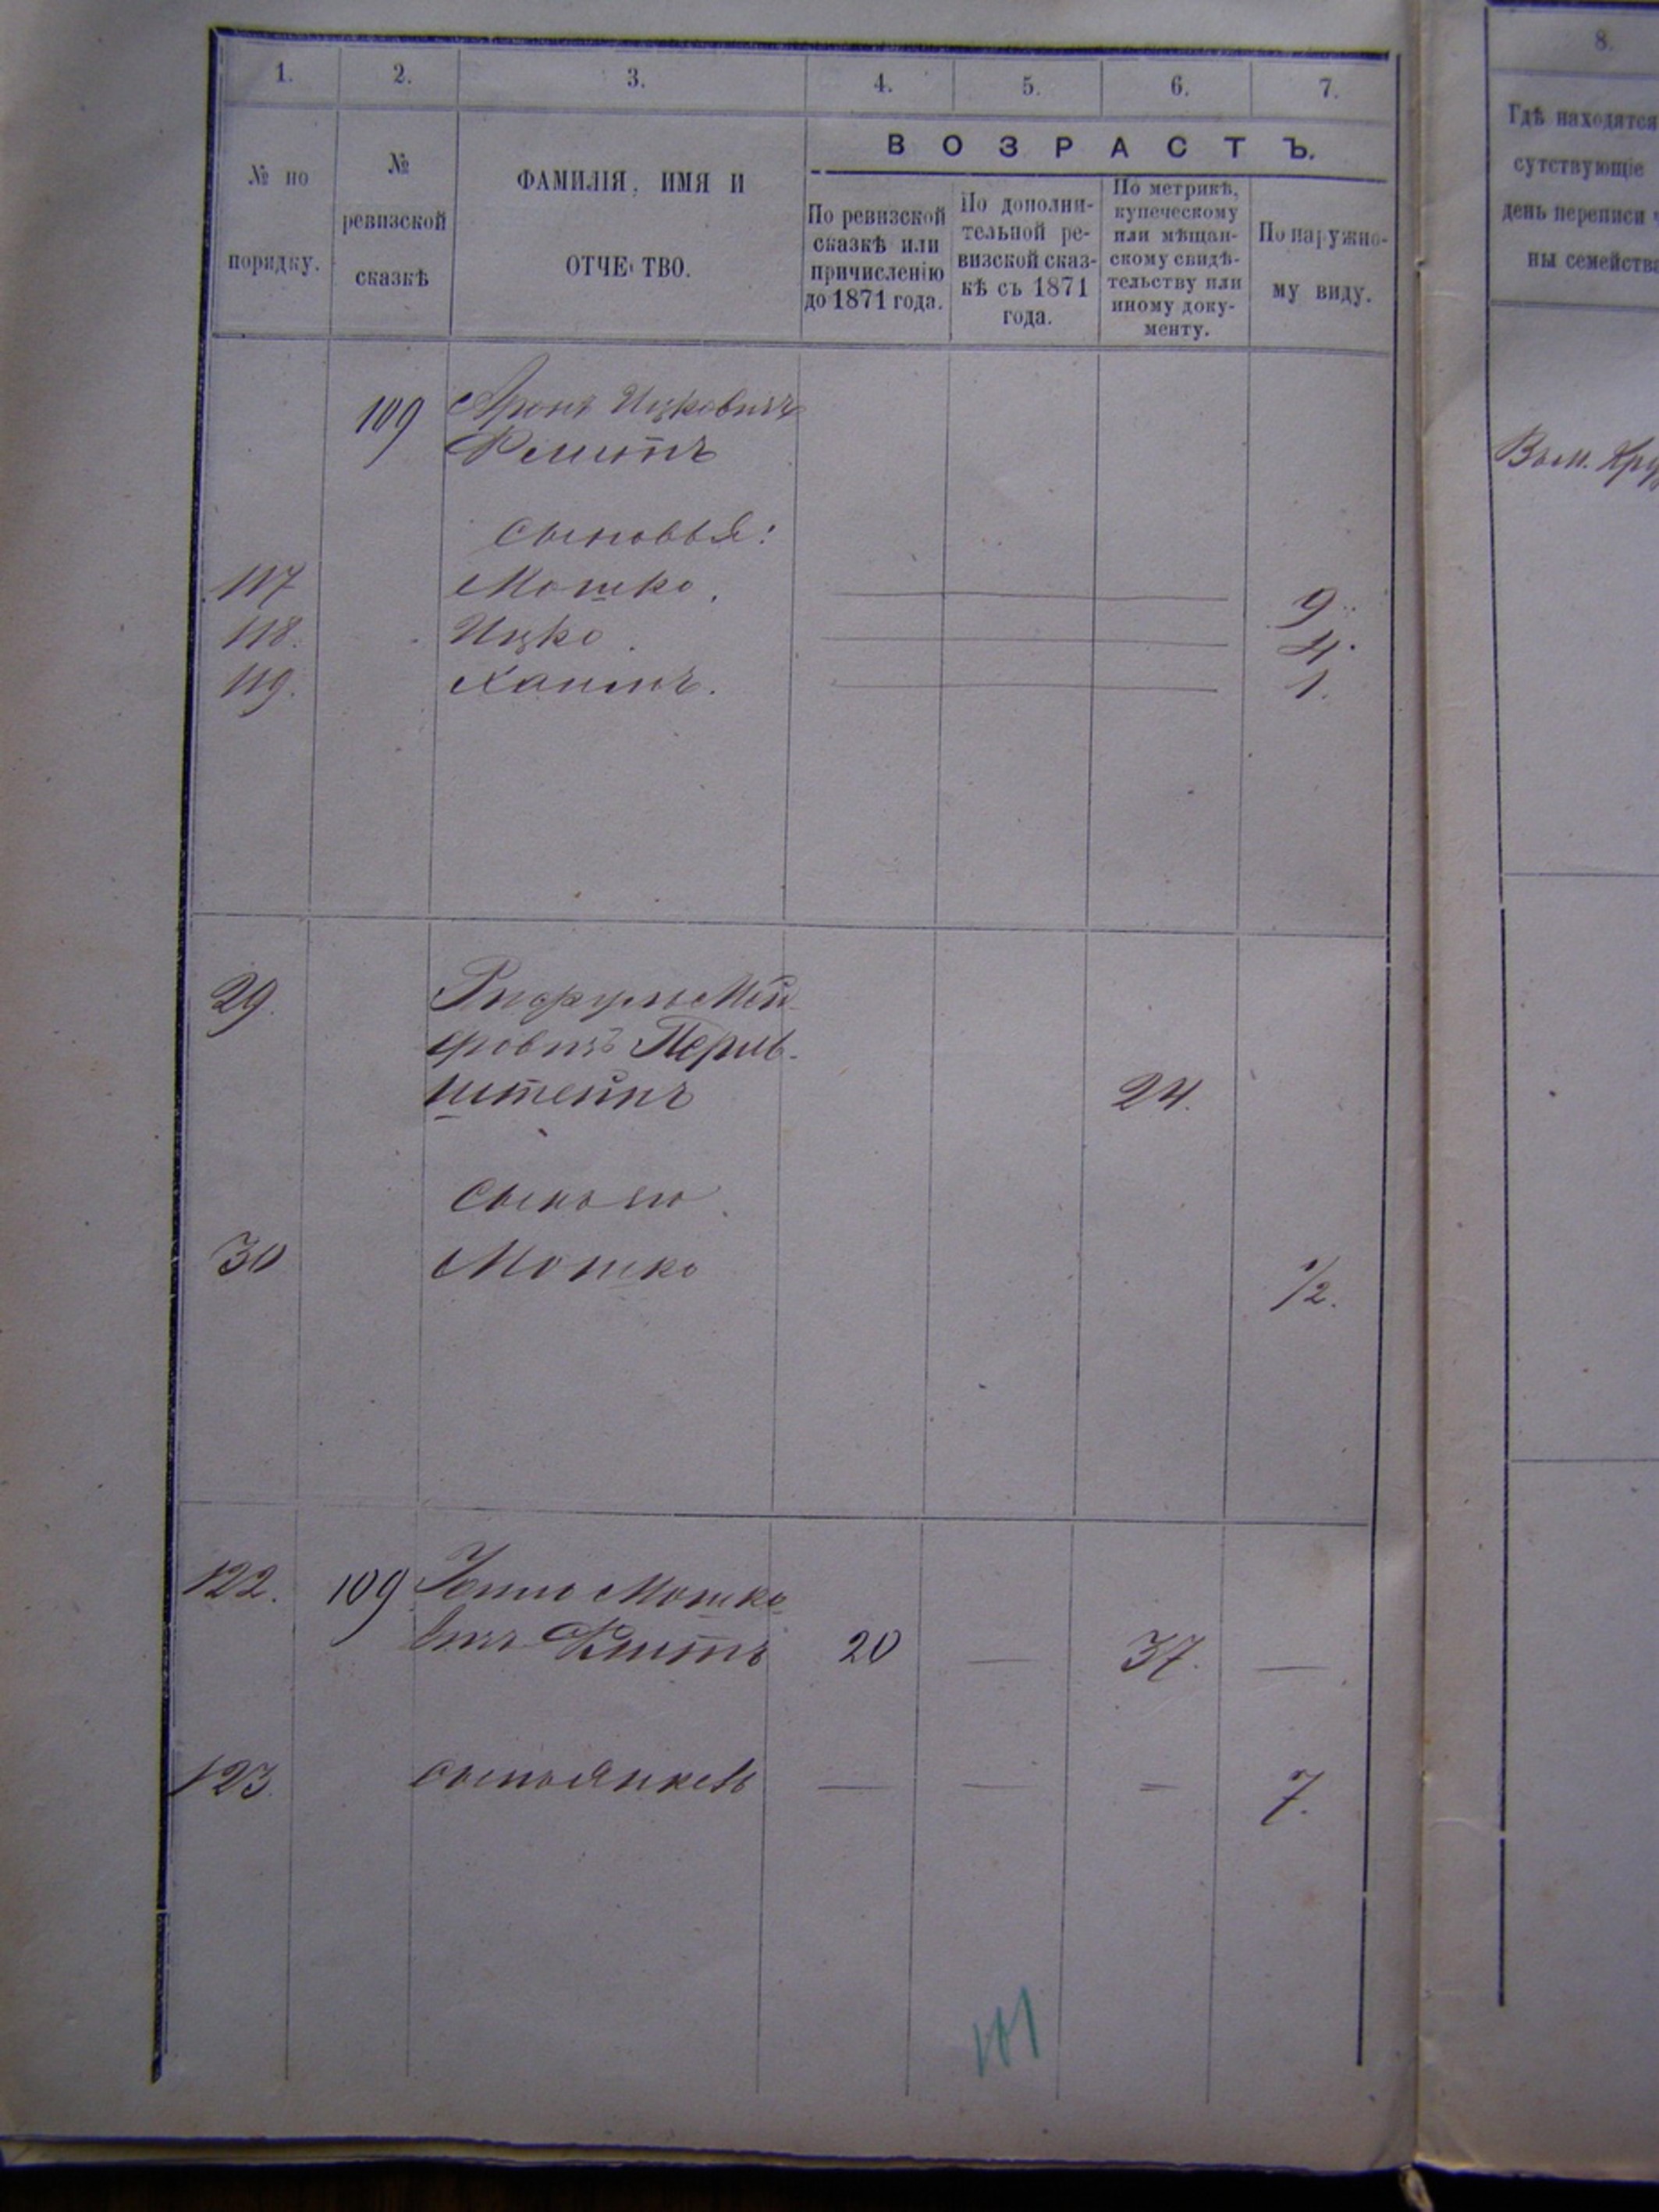 1. 2. 3. 4. 5. 6. 7.
№ по
порядку.
№
ревизской
сказкѣ
ФАМИЛІЯ, ИМЯ И
ОТЧЕСТВО.
ВОЗРАСТЪ.
По ревизской
сказкѣ или
причисленію
до 1871 года.
По дополни-
тельной ре-
визской сказ-
кѣ съ 1871
года.
По метрикѣ,
купеческому
или мѣщан-
скому свидѣ-
тельству или
иному доку-
менту.
По наружно-
му виду.
109 Аронъ Ицковичъ
сыновья:
117 Мошко. 9.
118. Ицко. 4.
119. Хаимъ. 1.
29. Мей-
ровичъ Перль-
штейнъ 24.
Сынъ его
30 Мошко 1/2.
122. 109 Мошко
вичъ 20 — 37. —
123. сынъ Янкель — — — 7.
101
8.
Гдѣ находятся
сутствующіе
день переписи ч
ны семейства